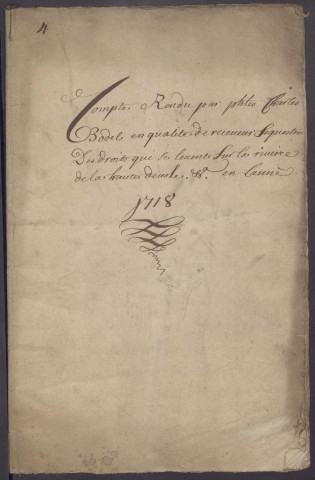 4
Compte Rendu par phles Charles
Bodel en qualité de receveur sequestre
Des droits que se levent sur la riviere
de la haute deusle &a. en l'année
1718